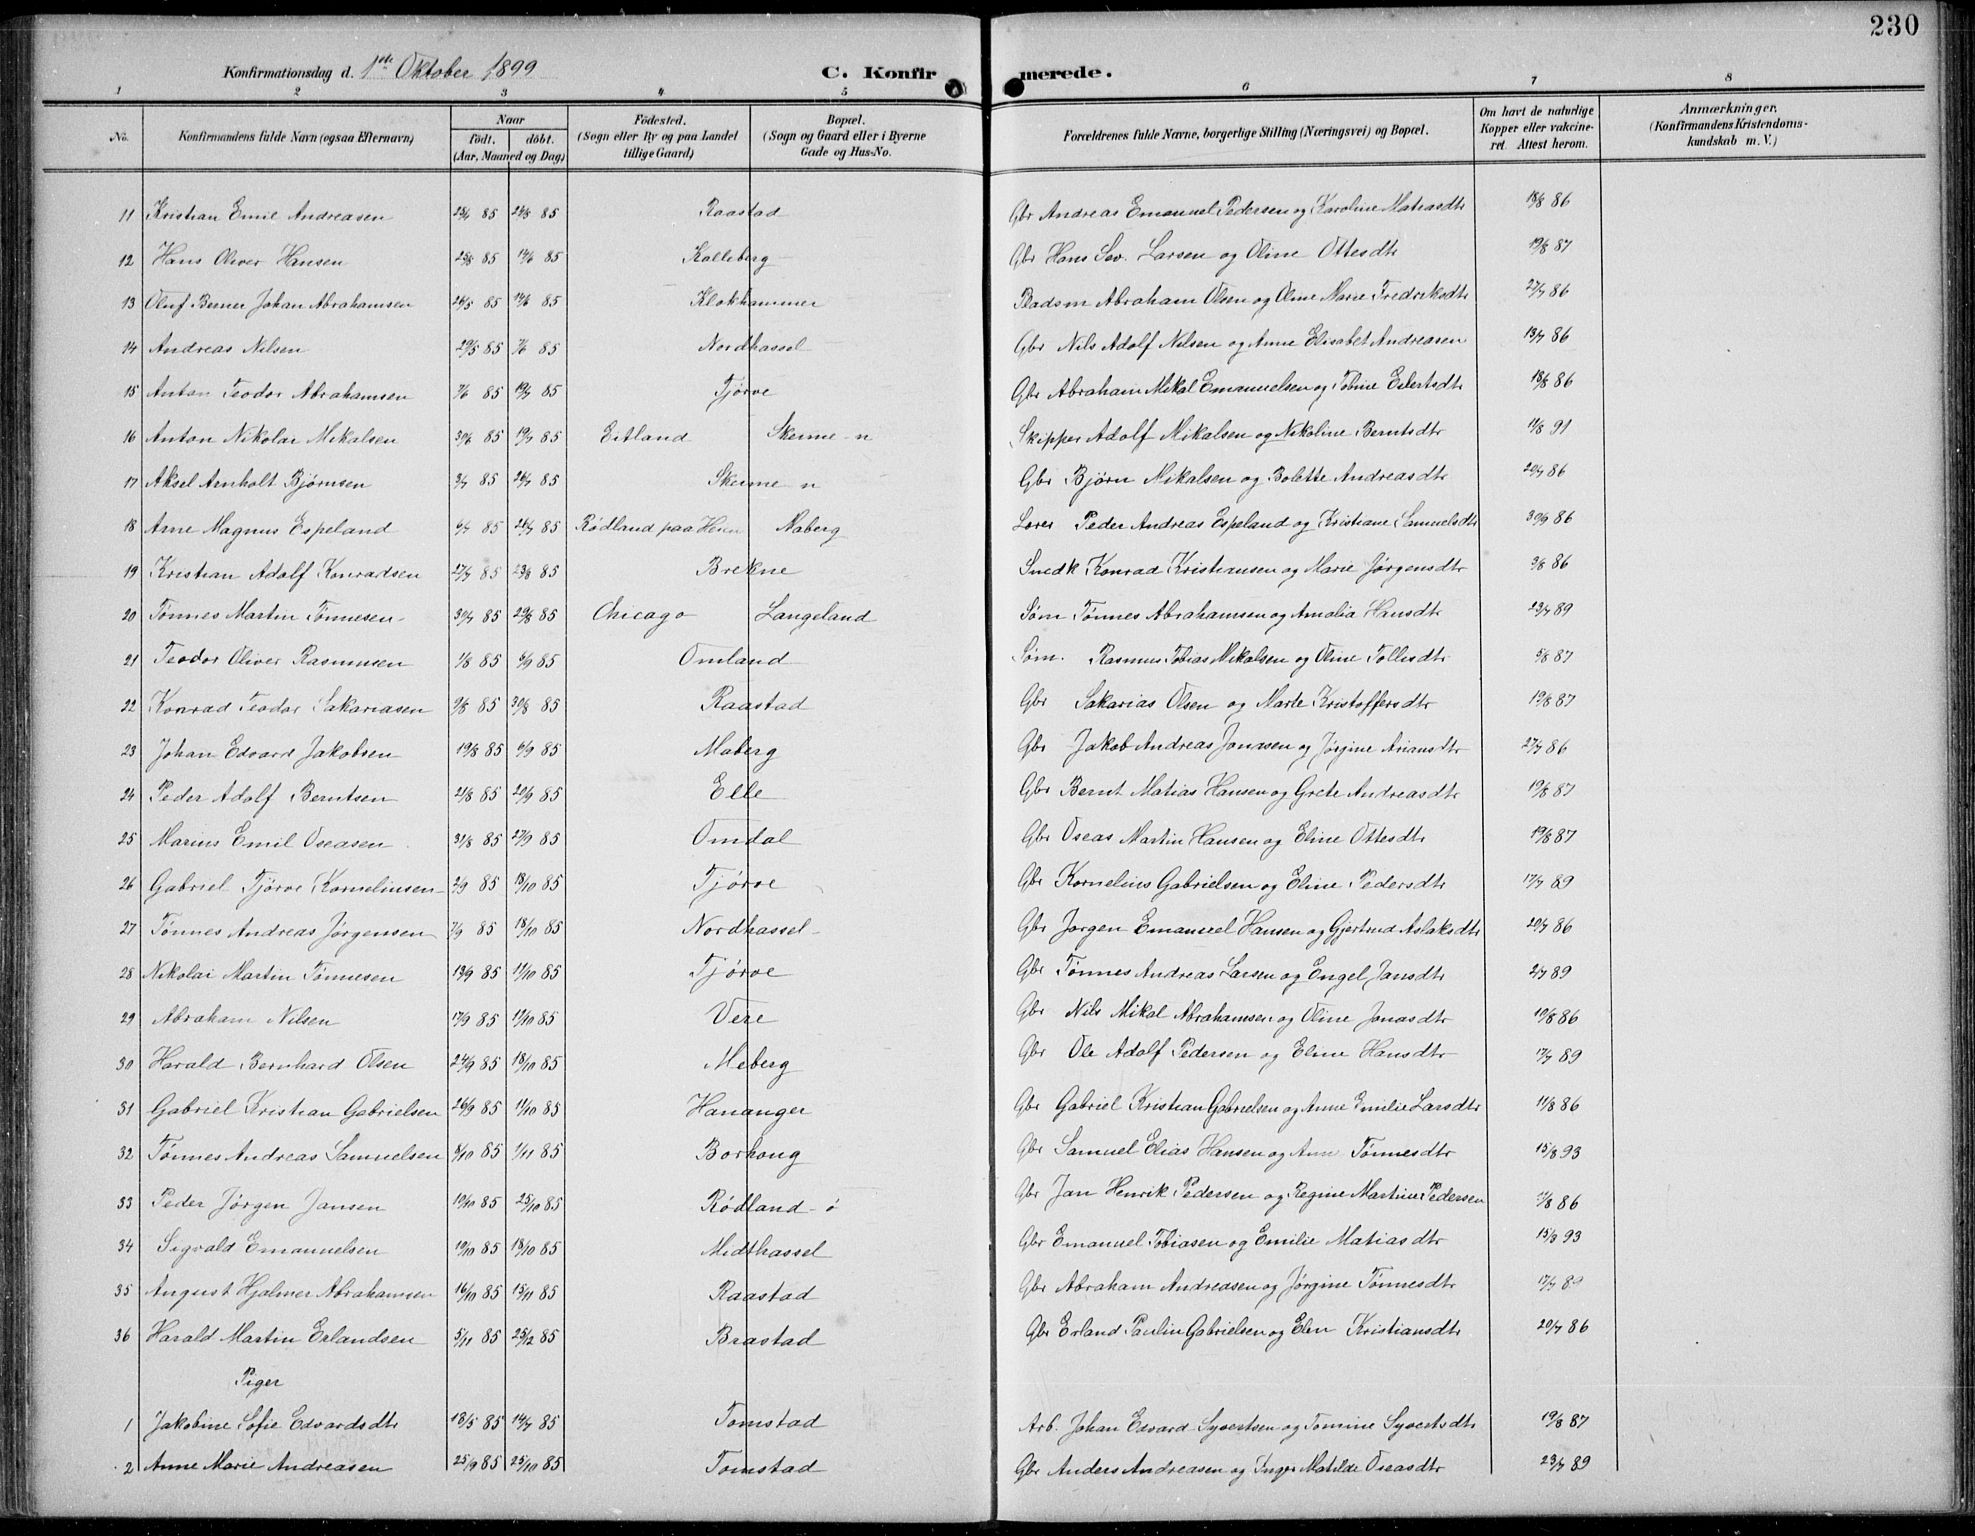 230
Konfirmationsdag d. 1ste Oktober 1899 C. Konfirmerede.
1 2 3 4 5 6 7 8
No. Konfirmandens fulde Navn (ogsaa Efternavn) Naar født. døbt. (Aar, Maaned og Dag) Fødested. (Sogn eller By og paa Landet tillige Gaard) Bopæl. (Sogn og Gaard eller i Byerne Gade og Hus-No. Forældrenes fulde Navne, borgerlige Stilling (Næringsvei) og Bopæl. Om havt de naturlige Kopper eller vakcineret. Attest herom. Anmærkninger. (Konfirmandens Kristendomskundskab m. V.)
11 Kristian Emil Andreasen 85 85 Raastad Gbr Andreas Emanuel Pedersen og Karoline Matiasdtr 18/8 86
12 Hans Oliver Hansen 85 14/6 85 Kalleberg Gbr Hans Sev. Larsen og Oline Ottesdtr 19/8 87
13 Oluf Berner Johan Abrahamsen 26/5 85 14/6 85 Klokhammer Baadsm Abraham Olsen og Oline Marie Fredriksdtr 27/7 86
14 Andreas Nilsen 29/5 85 7/6 85 Nordhassel Gbr Nils Adolf Nilsen og Anne Elisabet Andreasen 13/7 86
15 Anton Teodor Abrahamsen 7/6 85 19/7 85 Tjørve Gbr Abraham Mikal Emanuelsen og Toline Eilertsdtr 18/8 86
16 Anton Nikolai Mikalsen 30/6 85 19/7 85 Eitland Skeime n Skipper Adolf Mikalsen og Nikoline Berntsdtr 11/8 91
17 Aksel Arnholt Bjørnsen 3/7 85 26/7 85 Skeime n Gbr Bjørn Mikalsen og Bolette Andreasdtr 20/7 86
18 Arne Magnus Espeland 6/7 85 26/7 85 Rødland paa Heien Maberg Lærer Peder Andreas Espeland og Kristiane Samuelsdtr 30/9 86
19 Kristian Adolf Konradsen 27/7 85 23/8 85 Brekne Snedk Konrad Kristiansen og Marie Jørgensdtr 9/8 86
20 Tønnes Martin Tønnesen 30/7 85 29/8 85 Chicago Langeland Søm Tønnes Abrahamsen og Amalia Hansdtr 23/7 89
21 Teodor Oliver Rasmusen 1/8 85 6/9 85 Omland Søm. Rasmus Tobias Mikalsen og Oline Tollisdtr 5/8 87
22 Konrad Teodor Sakariasen 9/8 85 30/8 85 Raastad Gbr Sakarias Olsen og Marte Kristoffersdtr 19/8 87
23 Johan Edvard Jakobsen 19/8 85 6/9 85 Maberg Gbr Jakob Andreas Jonassen og Jørgine Ariansdtr 27/7 86
24 Peder Adolf Berntsen 21/8 85 20/9 85 Elle Gbr Bernt Matias Hansen og Grete Andreasdtr 19/8 87
25 Marius Emil Oseasen 31/8 85 27/9 85 Omdal Gbr Oseas Martin Hansen og Eline Ottesdtr 19/8 87
26 Gabriel Tjørve Korneliusen 2/9 85 18/10 85 Tjørve Gbr Kornelius Gabrielsen og Eline Pedersdtr 17/7 89
27 Tønnes Andreas Jørgensen 7/9 85 18/10 85 Nordhassel Gbr Jørgen Emanuel Hansen og Gjertrud Aslaksdtr 20/7 86
28 Nikolai Martin Tønnesen 13/9 85 11/10 85 Tjørve Gbr Tønnes Andreas Larsen og Engel Jansdtr 2/7 89
29 Abraham Nilsen 17/9 85 11/10 85 Vere Gbr Nils Mikal Abrahamsen og Oline Jonasdtr 10/8 86
30 Harald Bernhard Olsen 24/9 85 18/10 85 Meberg Gbr Ole Adolf Pedersen og Eline Hansdtr 17/7 89
31 Gabriel Kristian Gabrielsen 26/9 85 11/10 85 Hananger Gbr Gabriel Kristian Gabrielsen og Anne Emilie Larsdtr 11/8 86
32 Tønnes Andreas Samuelsen 8/10 85 1/11 85 Borhoug Gbr Samuel Elias Hansen og Anne Tønnesdtr 15/8 93
33 Peder Jørgen Jansen 10/10 85 25/10 85 Rødland ø Gbr Jan Henrik Pedersen og Regine Martine Pedersen 11/8 86
34 Sigvald Emanuelsen 10/10 85 18/10 85 Midthassel Gbr Emanuel Tobiasen og Emilie Matiasdtr 15/8 93
35 August Hjalmer Abrahamsen 16/10 85 15/11 85 Raastad Gbr Abraham Andreasen og Jørgine Tønnesdtr 17/7 89
36 Harald Martin Erlandsen 5/11 85 25/12 85 Brastad Gbr Erland Paulin Gabrielsen og Elen Kristiansdtr 20/7 86
Piger
1 Jakobine Sofie Edvardsdtr 18/5 85 14/7 85 Tomstad Arb. Johan Edvard Syvertsen og Tomine Syvertsdtr 19/8 87
2 Anne Marie Andreasen 25/9 85 25/10 85 Tomstad Gbr Anders Andreasen og Inger Matilde Oseasdtr 23/7 89